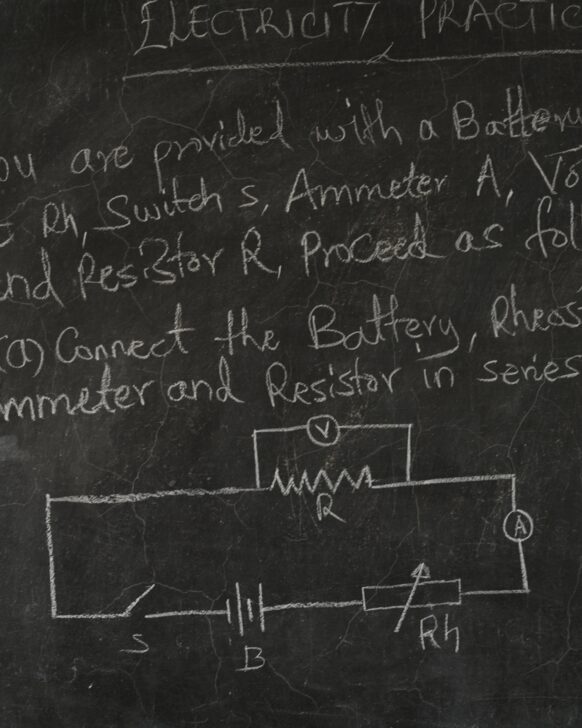 ELECTRICITY PRACTIC
ou are provided with a Battery
Rh, Switch s, Ammeter A, Vo
and Resistor R, Proceed as fol
(a) Connect the Battery, Rheos
mmeter and Resistor in series
V
R
A
S
B
Rh